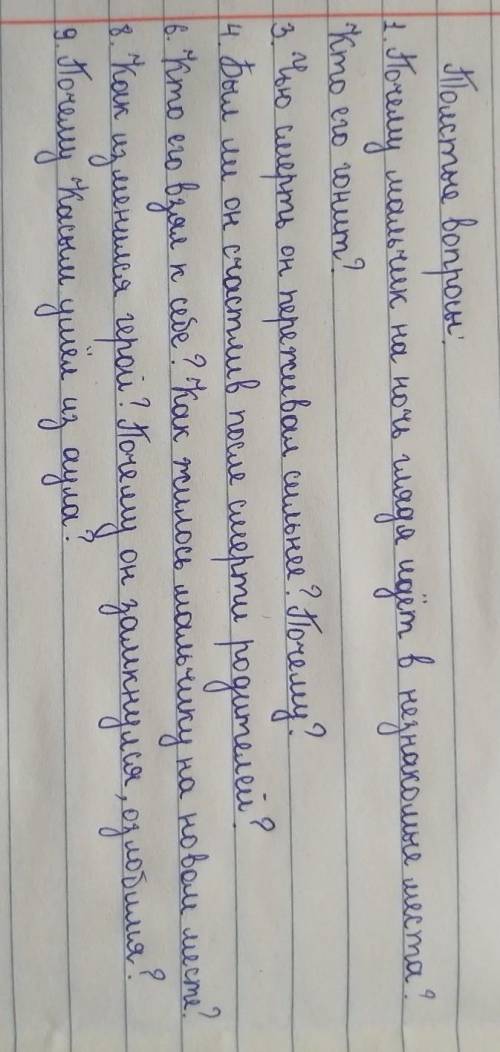 Толстые вопросы:
1. Почему мальчик на ночь глядя идёт в незнакомые места?
Кто его гонит?
3. Чью смерть он переживал сильнее? Почему?
4. Был ли он счастлив после смерти родителей?
6. Кто его взял к себе? Как жилось мальчику на новом месте?
8. Как изменился герой? Почему он замкнулся, озлобился?
9. Почему Касым ушёл из аула?